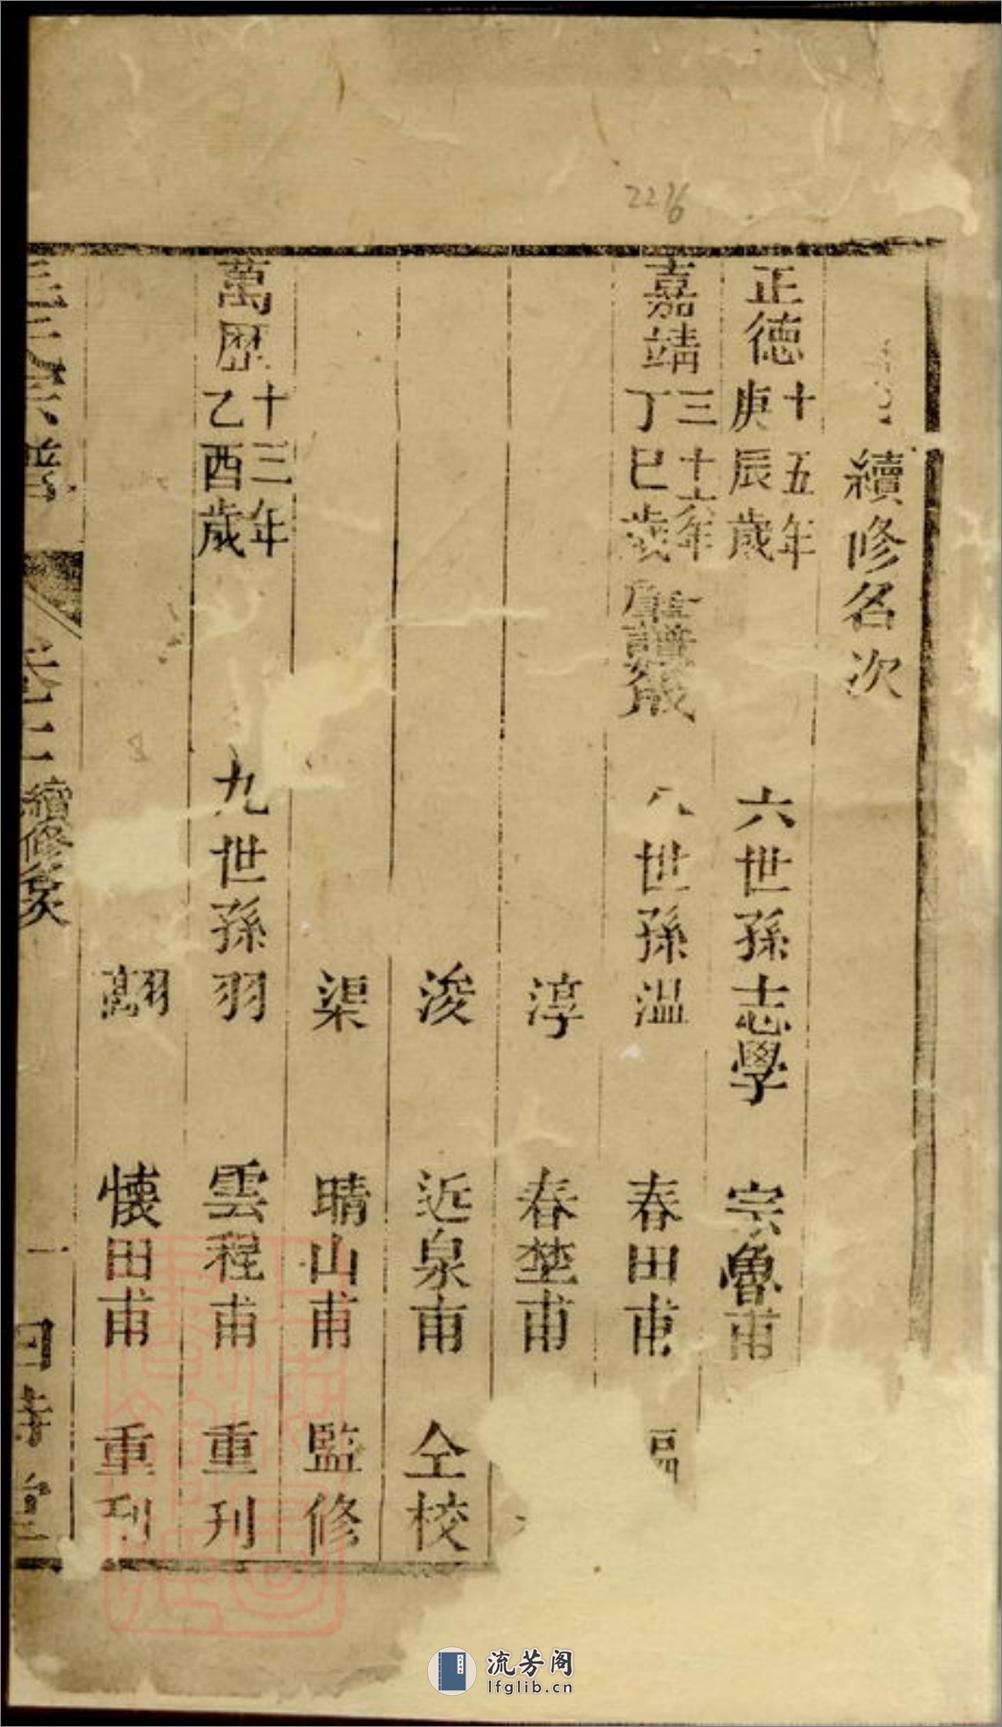 2216
續修名次
正德十五年庚辰歲 六世孫志學 宗魯甫
嘉靖三十六年丁巳歲 世孫溫 春田甫
淳 春埜甫
浚 近泉甫 仝校
渠 晴山甫 監修
萬歷十三年乙酉歲 九世孫羽 雲程甫 重刊
懐田甫 重刊
氏宗譜 卷 續修名次 一
流芳阁
lfglib.cn